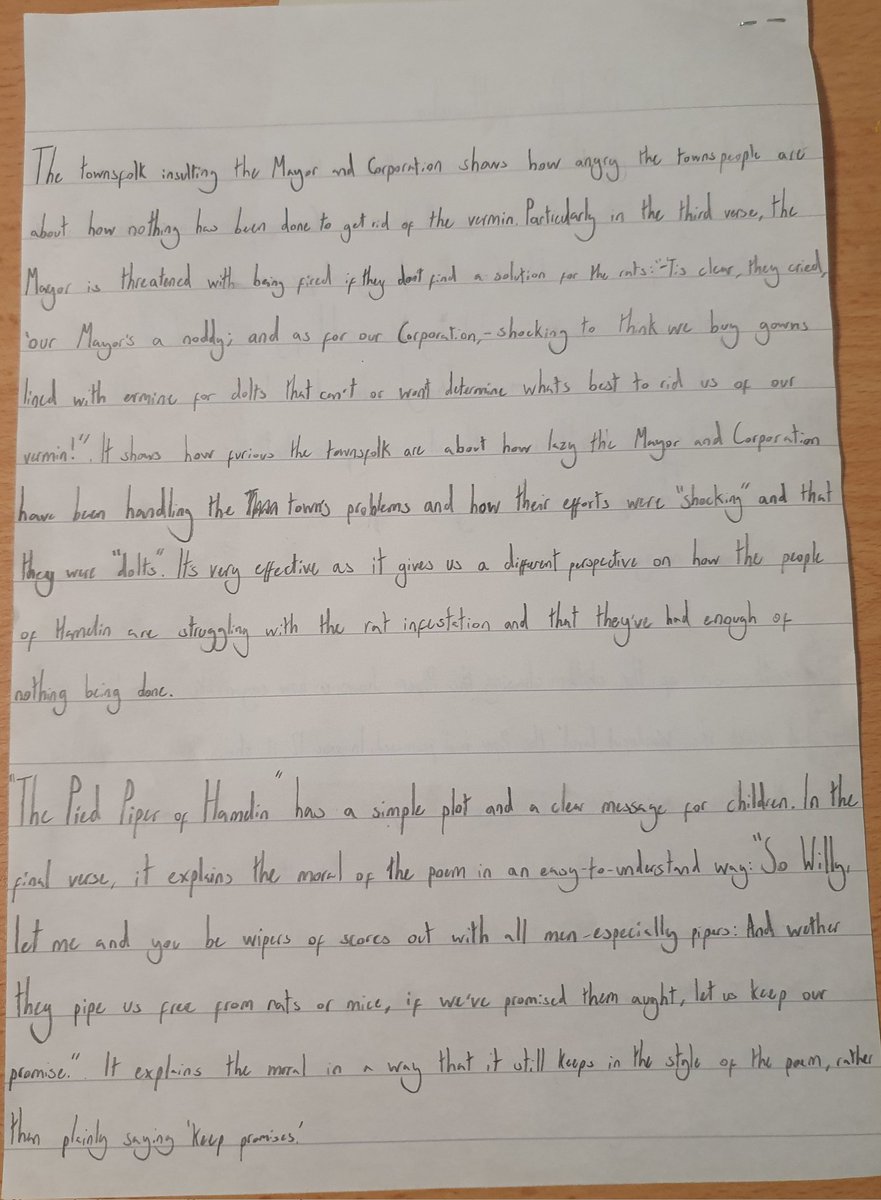 The townsfolk insulting the Mayor and Corporation shows how angry the townspeople are
about how nothing has been done to get rid of the vermin. Particularly in the third verse, the
Mayor is threatened with being fired if they don't find a solution for the rats: "-Tis clear, they cried,
'our Mayor's a noddy; and as for our Corporation,-shocking to think we buy gowns
lined with ermine for dolts that can't or won't determine whats best to rid us of our
vermin!". It shows how furious the townsfolk are about how lazy the Mayor and Corporation
have been handling the towns problems and how their efforts were "shocking" and that
they were "dolts". Its very effective as it gives us a different perspective on how the people
of Hamelin are struggling with the rat infestation and that they've had enough of
nothing being done.
"The Pied Piper of Hamelin" has a simple plot and a clear message for children. In the
final verse, it explains the moral of the poem in an easy-to-understand way: "So Willy,
let me and you be wipers of scores out with all men-especially pipers: And wether
they pipe us free from rats or mice, if we've promised them aught, let us keep our
promise.". It explains the moral in a way that it still keeps in the style of the poem, rather
than plainly saying 'keep promises'.